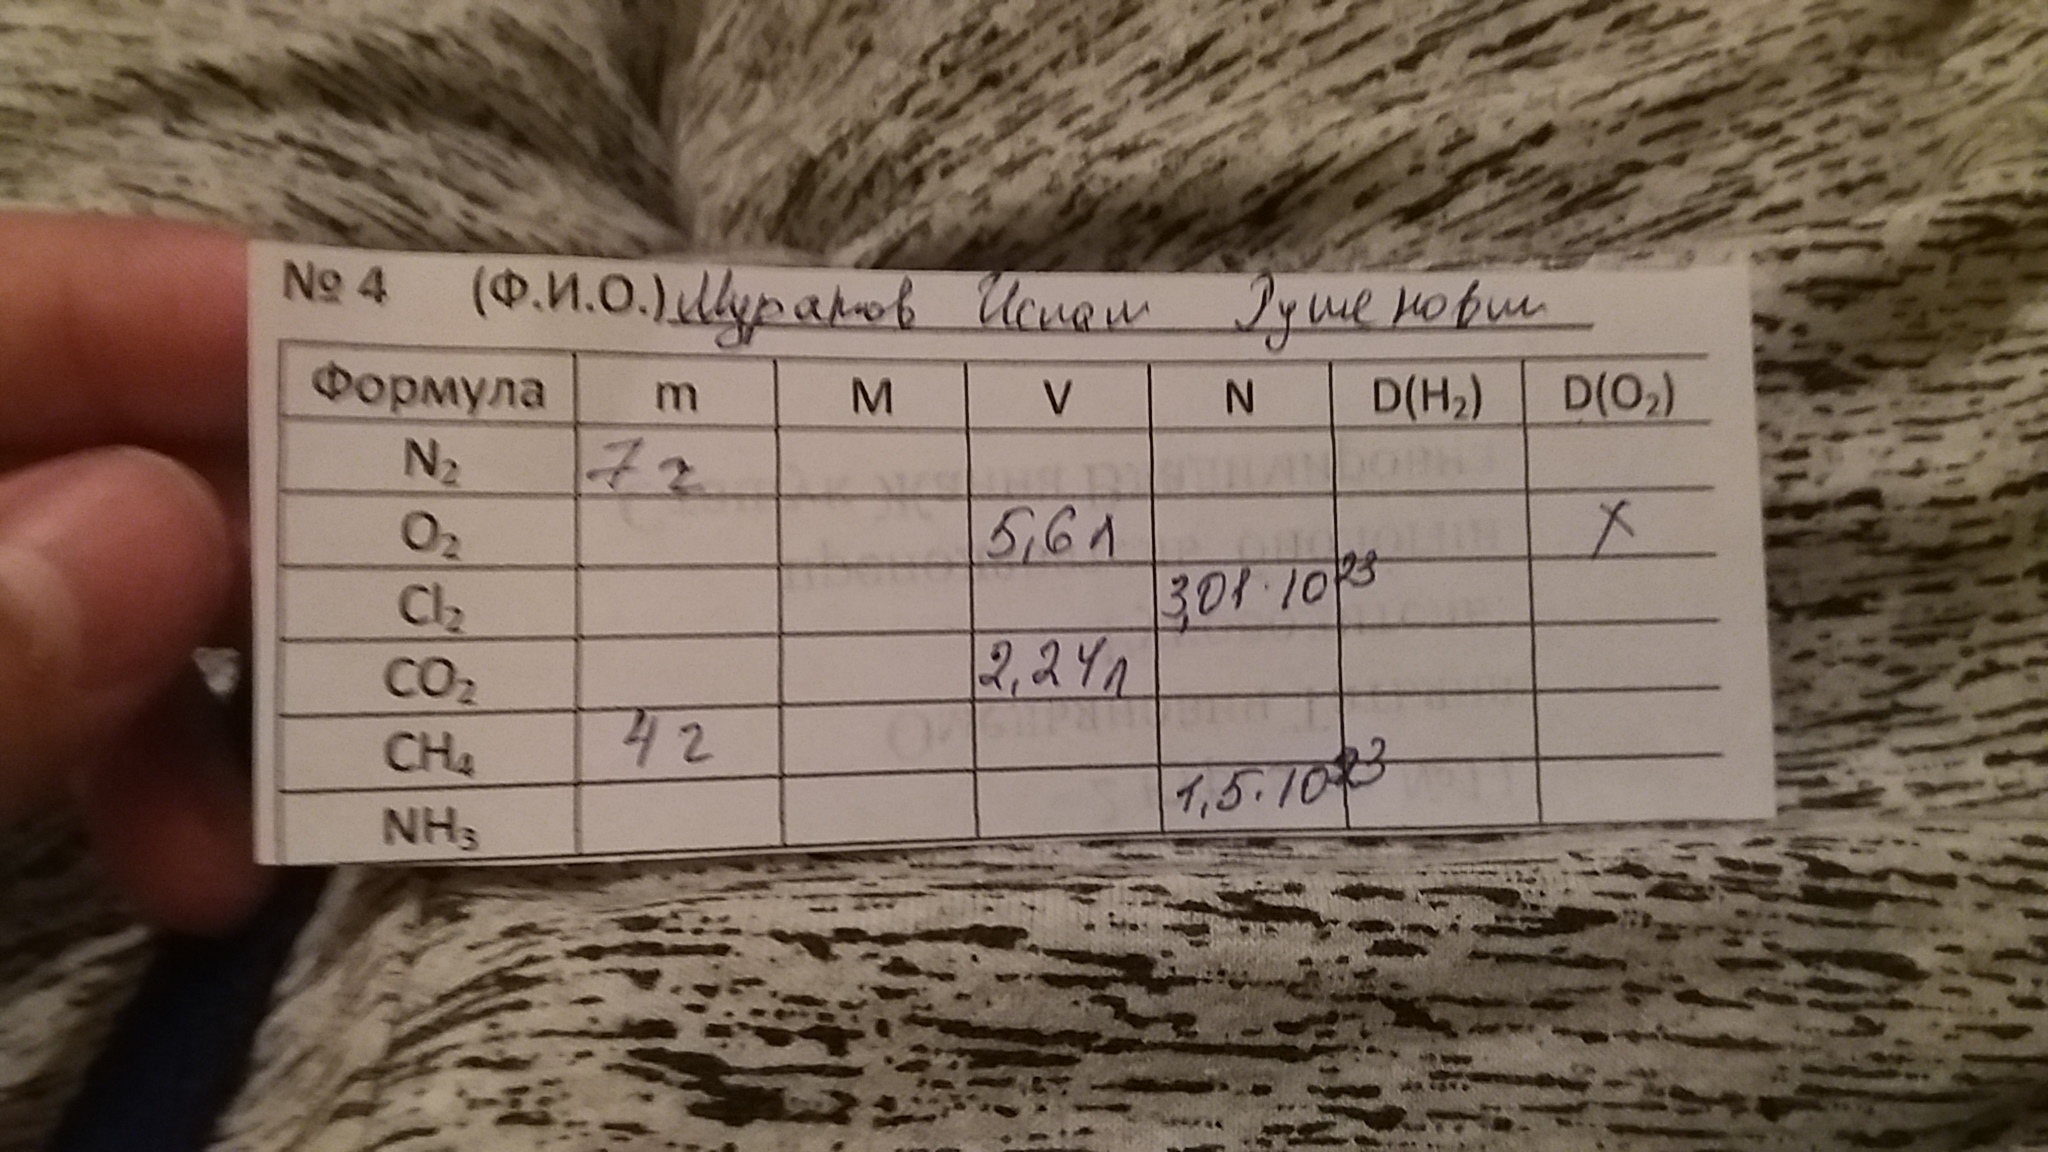 № 4 (Ф.И.О.) Муратов Ислам Рушенович
Формула m M V N D(H₂) D(O₂)
N₂ 7 г
O₂ 5,6 л X
Cl₂ 3,01·10²³
CO₂ 2,24л
CH₄ 4 г
NH₃ 1,5·10²³